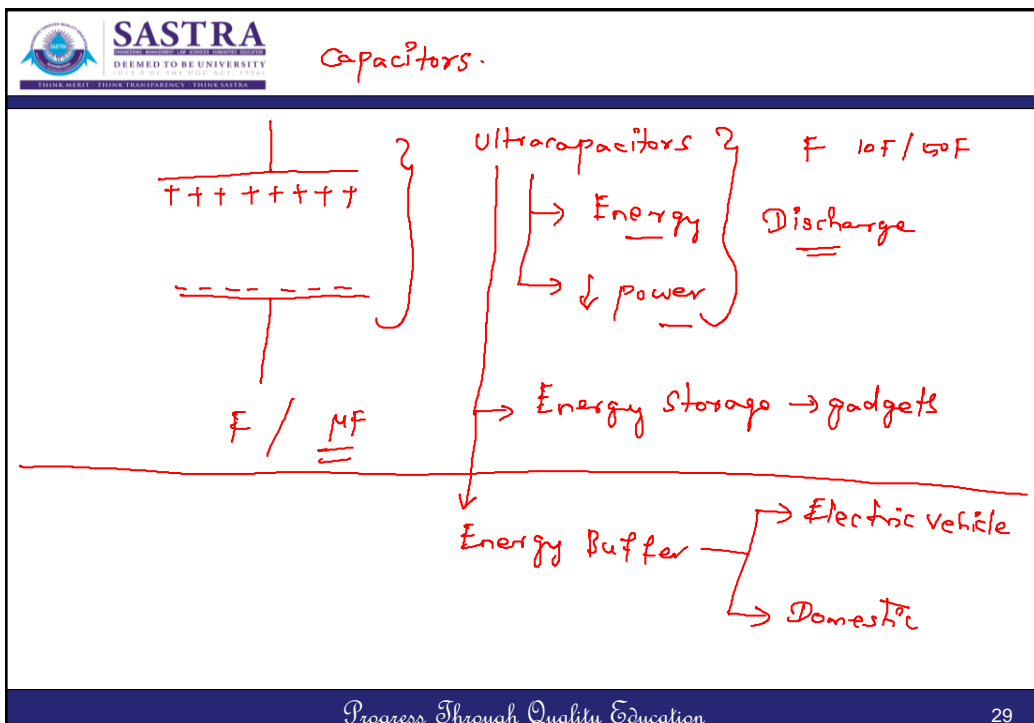 SASTRA
ENGINEERING MANAGEMENT LAW SCIENCES HUMANITIES EDUCATION
DEEMED TO BE UNIVERSITY
(U/S 3 OF THE UGC ACT, 1956)
THINK MERIT | THINK TRANSPARENCY | THINK SASTRA
Capacitors.
+ + + + + + + +
- - - - - - - -
F / μF
Ultracapacitors
F 10F/
→ Energy
Discharge
→ ↓ power
→ Energy Storage → gadgets
Energy Buffer
→ Electric vehicle
→ Domestic
Progress Through Quality Education
29